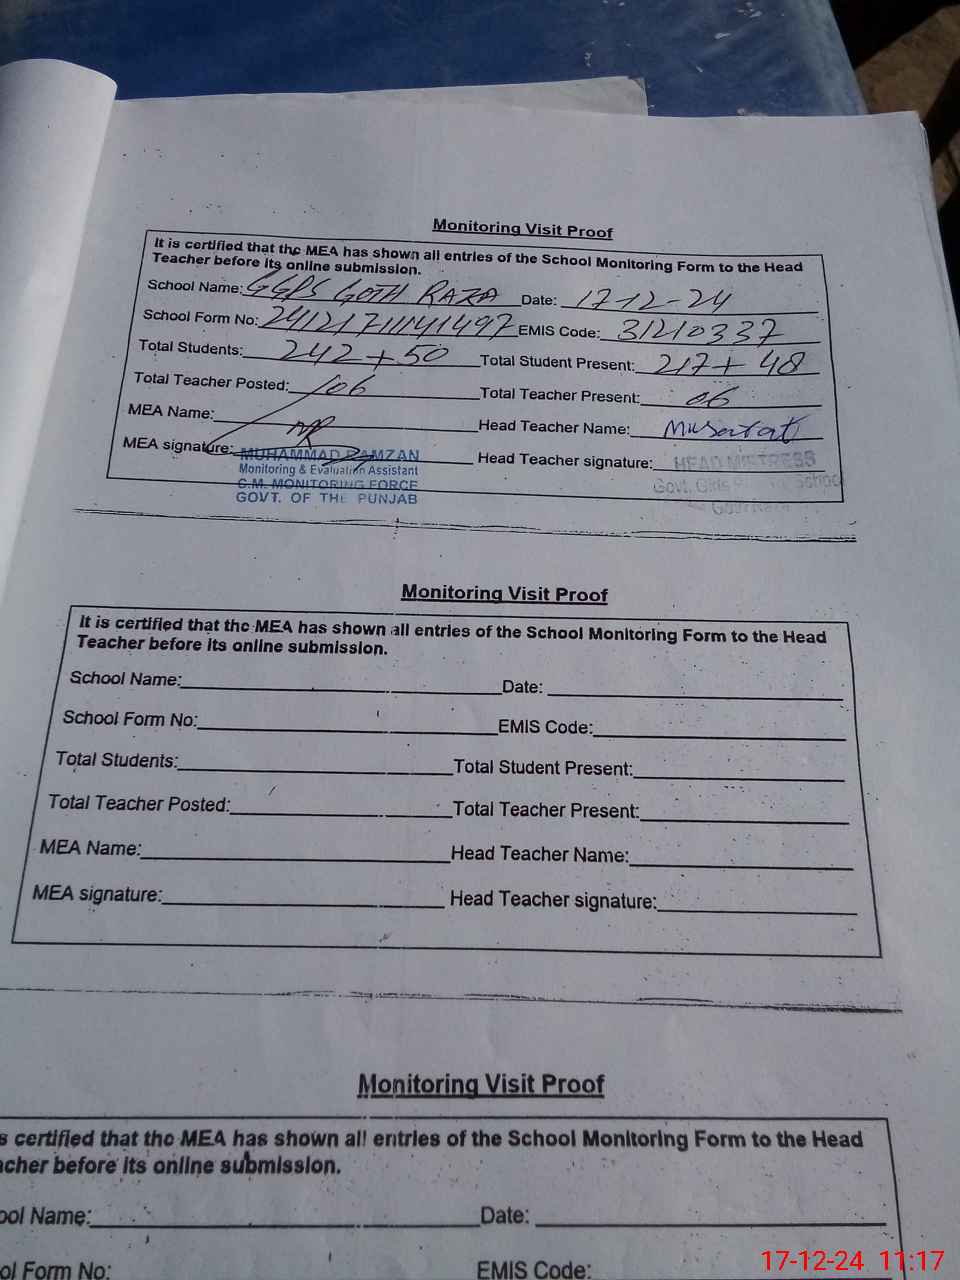 Monitoring Visit Proof
It is certified that the MEA has shown all entries of the School Monitoring Form to the Head
Teacher before its online submission.
School Name: GGPS GOTH RAZA Date: 17-12-24
School Form No: 241217111141497 EMIS Code: 31210337
Total Students: 242+50 Total Student Present: 217+48
Total Teacher Posted: 06 Total Teacher Present: 06
MEA Name: Head Teacher Name: Musarrat
MEA signature: Head Teacher signature:
MUHAMMAD RAMZAN HEAD MISTRESS
Monitoring & Evaluation Assistant Govt. Girls School
C.M. MONITORING FORCE
GOVT. OF THE PUNJAB
Monitoring Visit Proof
It is certified that the MEA has shown all entries of the School Monitoring Form to the Head
Teacher before its online submission.
School Name: Date:
School Form No: EMIS Code:
Total Students: Total Student Present:
Total Teacher Posted: Total Teacher Present:
MEA Name: Head Teacher Name:
MEA signature: Head Teacher signature:
Monitoring Visit Proof
s certified that the MEA has shown all entries of the School Monitoring Form to the Head
acher before its online submission.
ool Name: Date:
ol Form No: EMIS Code:
17-12-24 11:17